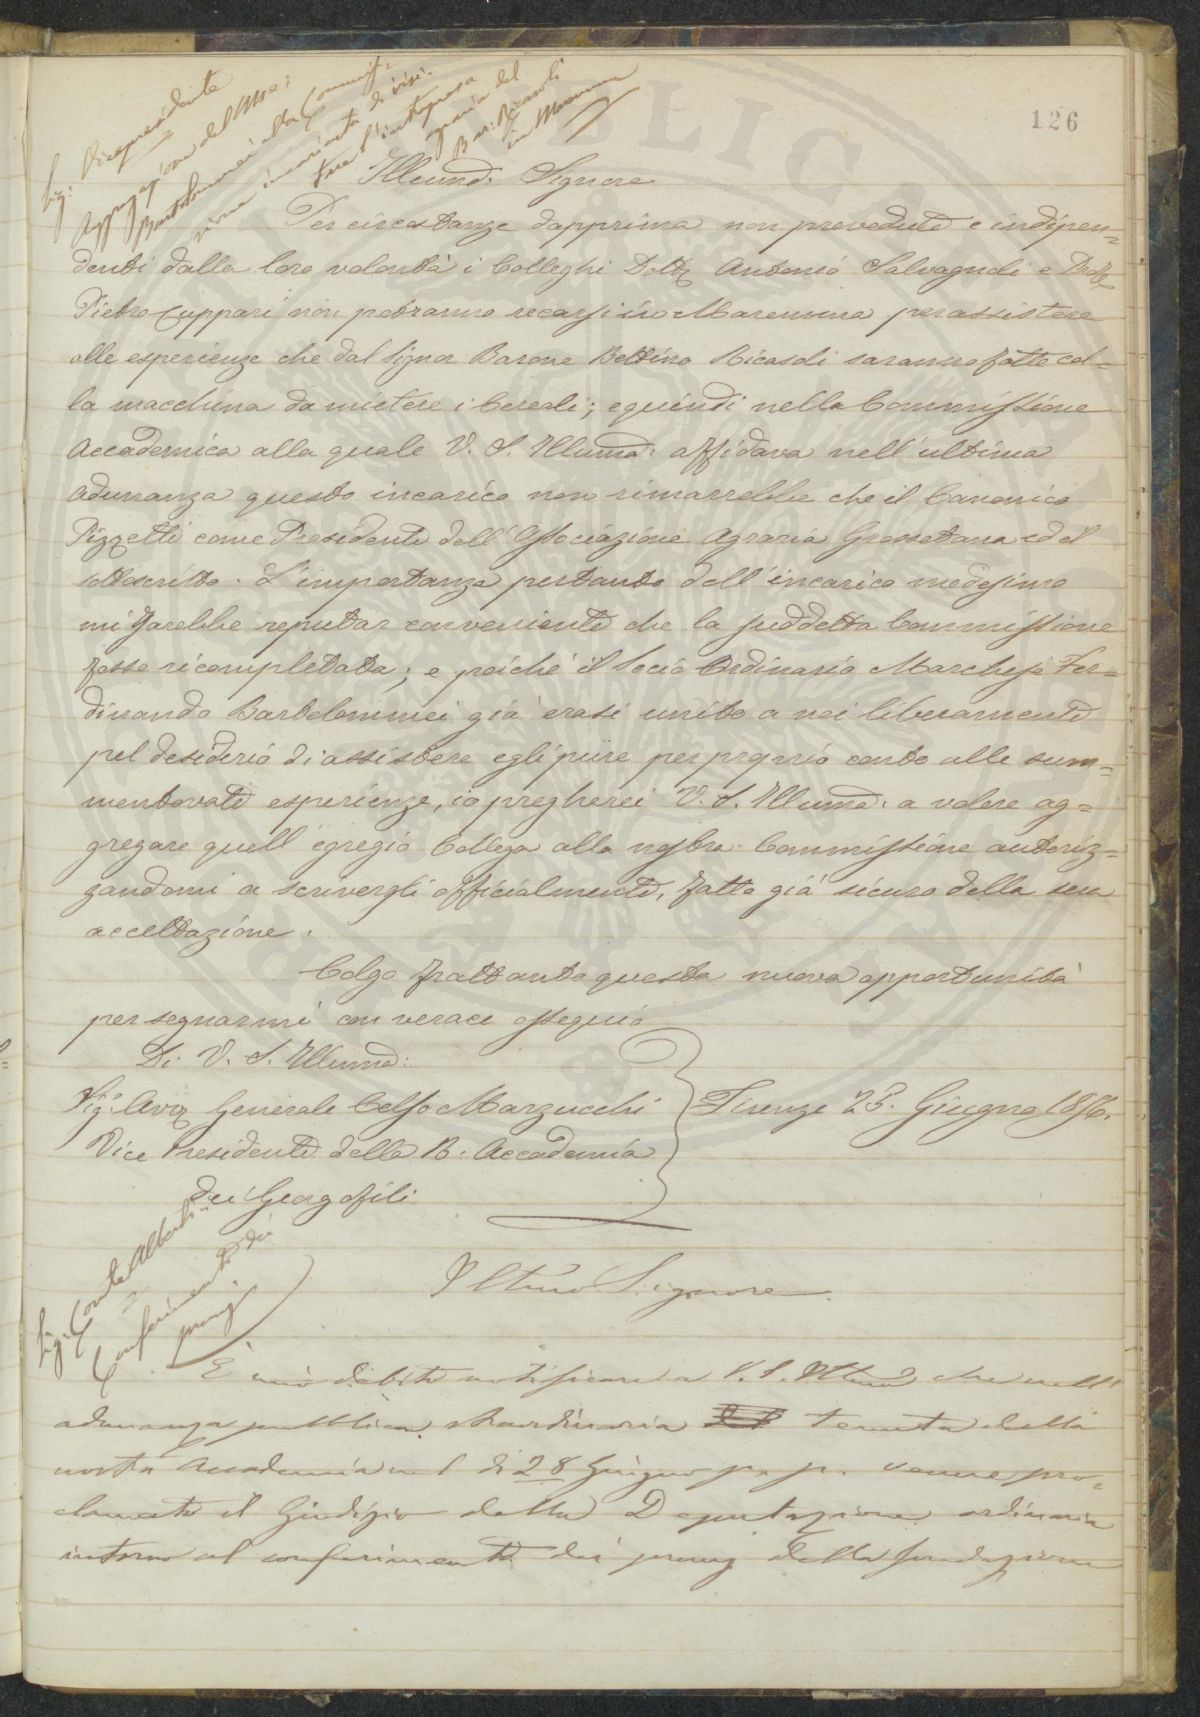 126
Sig: Vicepresidente
Aggregazione del Mse:
Bartolommei alla Commis-
sione incaricata di assi-
stere l'intrapresa
agraria del
Bar: Ricasoli
in Maremma
Illumo: Signore
Per circostanze dapprima non prevedute e indipen=
denti dalla loro volontà i Colleghi Dottr Antonio Salvagnoli e Dottr
Pietro Cuppari non potranno recarsi in Maremma per assistere
alle esperienze che dal Signor Barone Bettino Ricasoli saranno fatte col=
la macchina da mietere i Cereali; e quindi nella Commissione
Accademica alla quale V. S. Illuma: affidava nell'ultima
adunanza questo incarico non rimarrebbe che il Canonico
Pizzetti come Presidente dell'Associazione Agraria Grossetana ed il
sottoscritto. L'importanza pertanto dell'incarico medesimo
mi farebbe reputar conveniente che la suddetta Commissione
fosse ricompletata; e poiché il Socio Ordinario Marchese Fer=
dinando Bartolommei già erasi unito a noi liberamente
pel desiderio di assistere egli pure per proprio conto alle sum=
mentovate esperienze, io pregherei V. S. Illuma: a volere ag=
gregare quell'egregio Collega alla nostra Commissione autoriz=
zandomi a scrivergli officialmente, fatto già sicuro della sua
accettazione.
Colgo frattanto questa nuova opportunità
per segnarmi con verace ossequio
Di V. S. Illuma:
Sigr: Avvo Generale Celso Marzucchi
Firenze 25. Giugno 1856.
Vice Presidente della R. Accademia
dei Georgofili
Sig: Conte Alberti
Conferimento dei
premj
Illmo Signore
È mio debito notificare a V. S. Illma che nell'
adunanza pubblica straordinaria tenuta dalla
nostra Accademia nel dì 28 Giugno p. p. venne pro=
clamato il Giudizio della Deputazione ordinaria
intorno al conferimento dei premj della fondazione